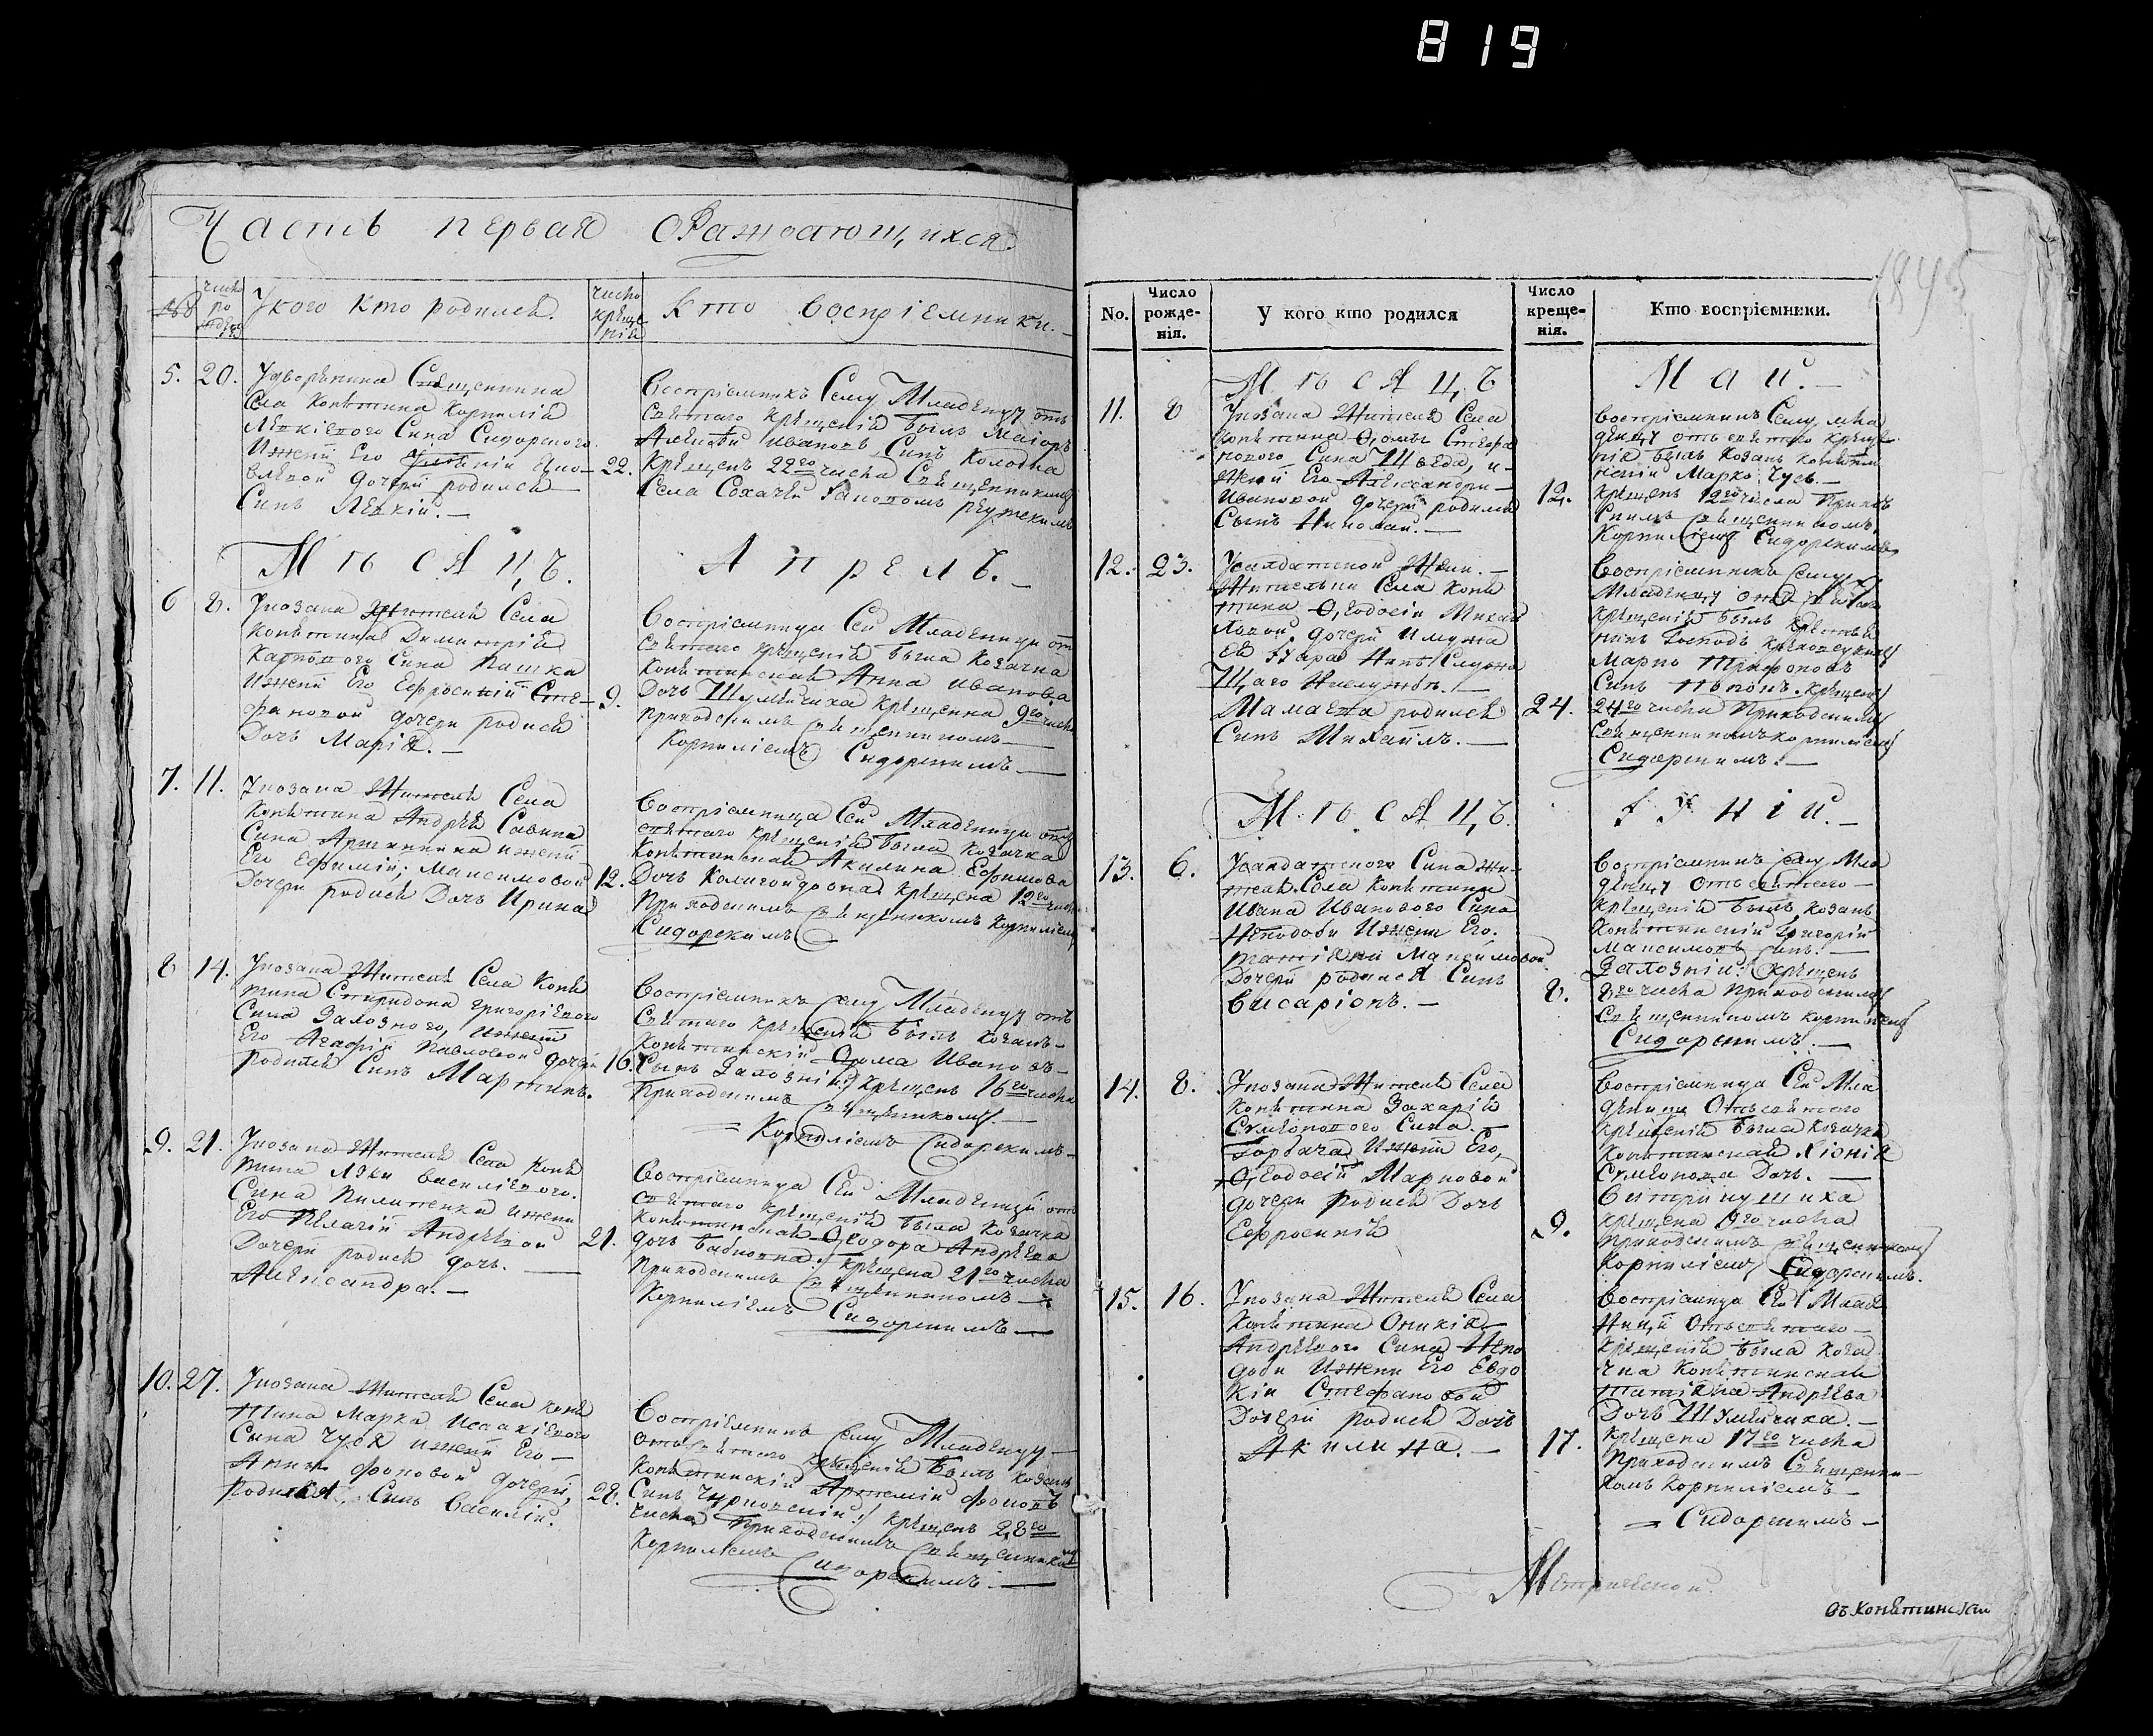 819
Часть первая О Раждающихся
№
число
ро
У кого кто родился.
число
креще
нія
Кто воспріемники.
5. 20. У дворянина Священника
Села Конятина Корнилія
Сина Сидорского
И жени Его
дочери родился
Синъ
Воспріемникъ Сему Младенцу отъ
Святаго крещенія былъ Маіоръ
Алексѣй Ивановъ Синъ
22. Крещенъ 22го числа Священникомъ
Села Сохачи
Мѣсяцъ
Апрель.
6 8. У козака Жителя Села
Конятина Димитрія
Карпового Сина Пашка
И жени Его Ефросиніи Сте-
фановой дочери родися
Дочъ Марія.
Воспріемница Сей Младеници отъ
святаго крещенія была Козачка
Конятинская Анна Иванова
9. Дочъ Шумейчиха крещенна 9го числа
приходскимъ священникомъ
Корниліемъ Сидорскимъ
7. 11. У козака Жителя Села
Конятина Андрея Савина
Сина и жени
Его Ефиміи Максимовой
Дочери родися Дочъ Ирина
Воспріемница Сей Младеници отъ
святаго крещенія была Козачка
Конятинская Акилина Ефимова
12. Дочъ крещена 12го числа
Приходскимъ священникомъ Корниліемъ
Сидорскимъ
8 14. У козака Жителя Села Коня
тина Спиридона Григоріевого
Сина Залозного, и жени
Его Агафіи Павловой дочери
Родился Синъ Мартинъ.
Воспріемникъ Сему Младенцу отъ
Святаго крещенія былъ Козакъ
Конятинскій Ѳома Ивановъ
16. Сынъ Залозній крещенъ 16го числа
Приходскимъ священникомъ
Корниліемъ Сидорскимъ
9. 21. У козака Жителя Села Коня
тина Луки Василіевого
Сина Пилипенка и жени
Его Пелагіи Андреевой
Дочери родися дочъ.
Александра.
Воспріемница Сей Младеници отъ
святаго крещенія была Козачка
Конятинская Ѳеодора Андреева
21. дочъ крещена 21го числа
Приходскимъ священникомъ
Корниліемъ Сидорскимъ
10. 27. У козака Жителя Села Коня
тина Марка Исаакіевого
Сина Чуся и жени Его
Анны Фоковой дочери,
Родился Синъ Василій.
Воспріемникъ Сему Младенцу
отъ святаго крещенія былъ козакъ
Конятинскій Артемій Фоковъ
28. Синъ крещенъ 28го
числа Приходскимъ священникомъ
Корниліемъ Сидорскимъ
1845
No.
Число
рожде-
нія.
У кого кто родился
Число
креще-
нія.
Кто воспріемники.
Мѣсяцъ
Май.
11. 8 У козака Жителя Села
Конятина Ѳомы Стефа
нового Сина Шведа, и
жени Его Александри
Ивановой дочери родился
Сынъ Николай.
Воспріемникъ Сему мла
денцу отъ святаго креще
нія былъ козакъ конятин
скій Марко Чусь.
12. Крещенъ 12го числа Приход
скимъ священникомъ
Корниліемъ Сидорскимъ
12. 23. У салдатской Жени.
Жителки Села Коня
тина Ѳеодосіи Михай
ловой дочери и мужа
родился
Синъ Михаилъ.
Воспріемникъ Сему
Младенцу отъ святаго
крещенія былъ
Марко Трифоновъ
Синъ крещенъ
24. 24го числа Приходскимъ
Священникомъ Корниліемъ
Сидорскимъ.
Мѣсяцъ
Іуній.
13. 6. У салдатского Сина жи-
теля Села Конятина
Ивана Иванового Сина
Неподоби И жени Его.
татіяни Максимовой
Дочери родился Синъ
Висаріонъ.
Воспріемникъ Сему Мла
денцу отъ святаго
крещенія былъ козакъ
Конятинскій Григорій
Максимовъ Синъ.
Залозній. крещенъ
8. 8го числа приходскимъ
Священникомъ Корниліемъ
Сидорскимъ.
14. 8. У козака Жителя Села
Конятина Захарія
Симеонового Сина.
Горбача И жени Его,
Ѳеодосіи Марковой
дочери родися Дочъ
Ефросинія
Воспріемница Сей Мла
деници Отъ святаго
крещенія была козачка
Конятинская Хіонія
Симеонова Дочъ.
9. крещена 9го числа
приходскимъ священникомъ
Корниліемъ Сидорскимъ.
15. 16. У козака Жителя Села
Конятина Оникія
Андреевого Сина Непо
доби И жени Его Евдо
кіи Стефановой
Дочери родися Дочъ
Акилина.
Воспріемница Сей Младе
ници Отъ святаго
крещенія была козач
ка Конятинская
татіяна Андреева
Дочъ Шумейчиха.
17. Крещена 17го числа
Приходскимъ Священни-
комъ Корниліемъ
Сидорскимъ
Метрической